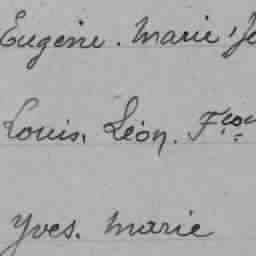 Eugène. Marie, Jo
Louis, Léon. Fçois
Yves. Marie